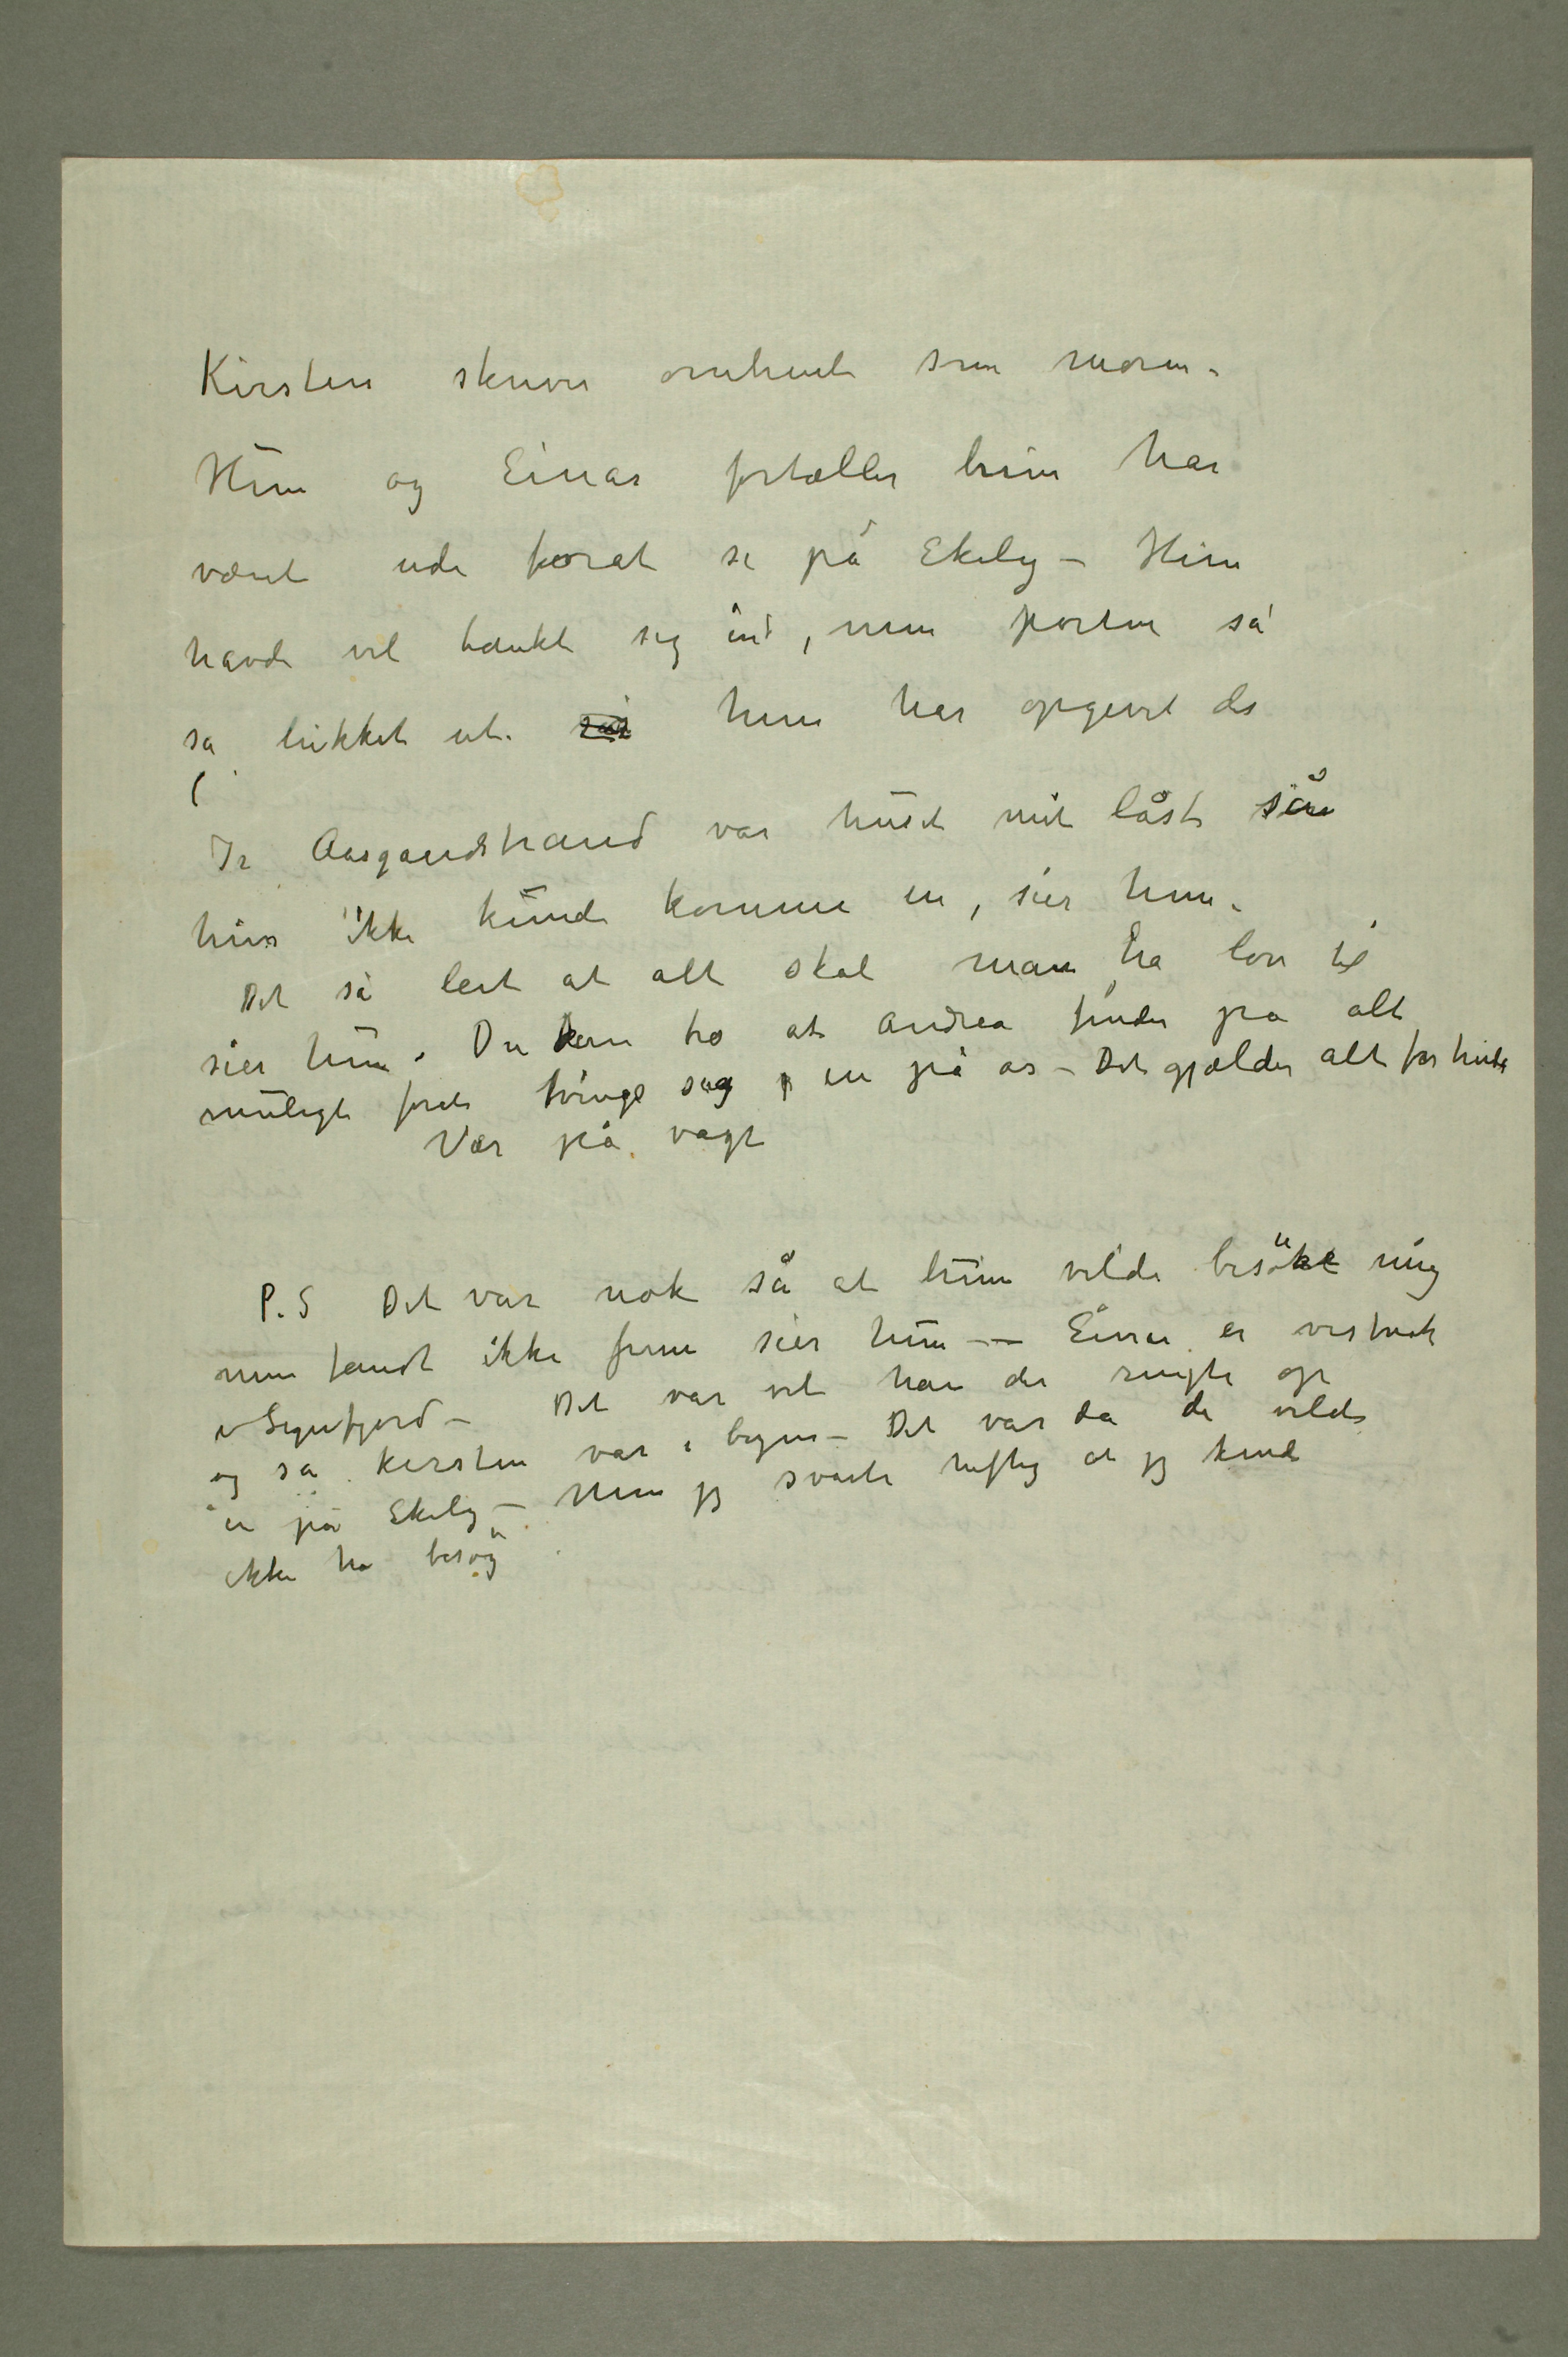 Kirsten skriver omtrent som moren.
Hun og Einar fortæller hun har
været ude forat se på Ekely – Hun
havde vel tænkt sig ind, men porten så
sa lukket ut. hun har opgivet de
(
I Aasgaardstrand var huset mit låst så
hun ikke kunde komme in, sier hun.
Det så leit at alt skal man ha lov til
sier hun. Du kan tro at Andrea finder på alt
muligt forat trænge sig in på os – Det gjælder alt for hende
Vær på vagt
P.S Det var nok så at hun vilde besöke mig
men fandt ikke frem sier hun –– Einar er vistnok
i Signefjord – Det var vel han der ringte op
og så Kirsten var i byen – Det var da de vilde
in på Ekely – Men jeg svarte heftig at jeg kunde
ikke ha besög